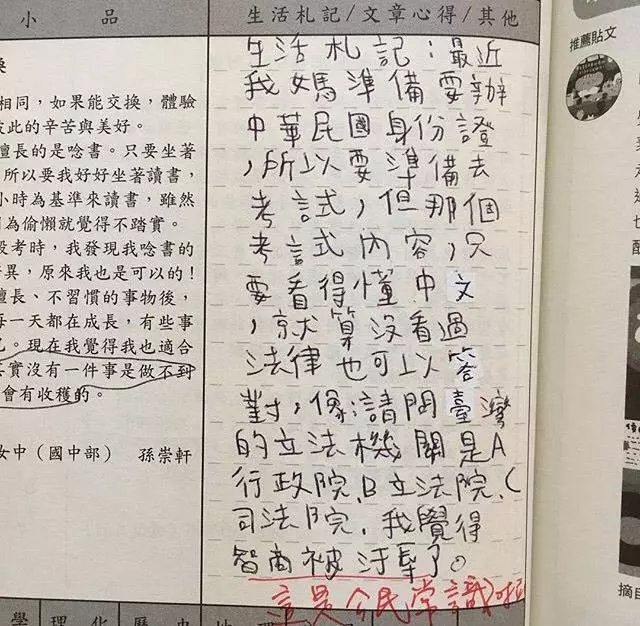 小品
生活札記/文章心得/其他
相同,如果能交換,體驗
彼此的辛苦與美好。
擅長的是唸書。只要坐著
所以要我好好坐著讀書,
小時為基準來讀書,雖然
因為偷懶就覺得不踏實。
段考時,我發現我唸書的
異,原來我也是可以的!
擅長、不習慣的事物後,
每一天都在成長,有些事
現在我覺得我也適合
其實沒有一件事是做不到
會有收穫的。
女中(國中部) 孫崇軒
生活札記:最近
我媽準備要辦
中華民國身份證
,所以要準備去
考試,但那個
考試內容,只
要看得懂中文
,就算沒看過
法律也可以答
對,像:請問臺灣
的立法機關是A
行政院、B立法院、C
司法院,我覺得
智商被汙辱了。
這是公民常識啦
學 理化 歷史 地理
推薦貼文
摘自